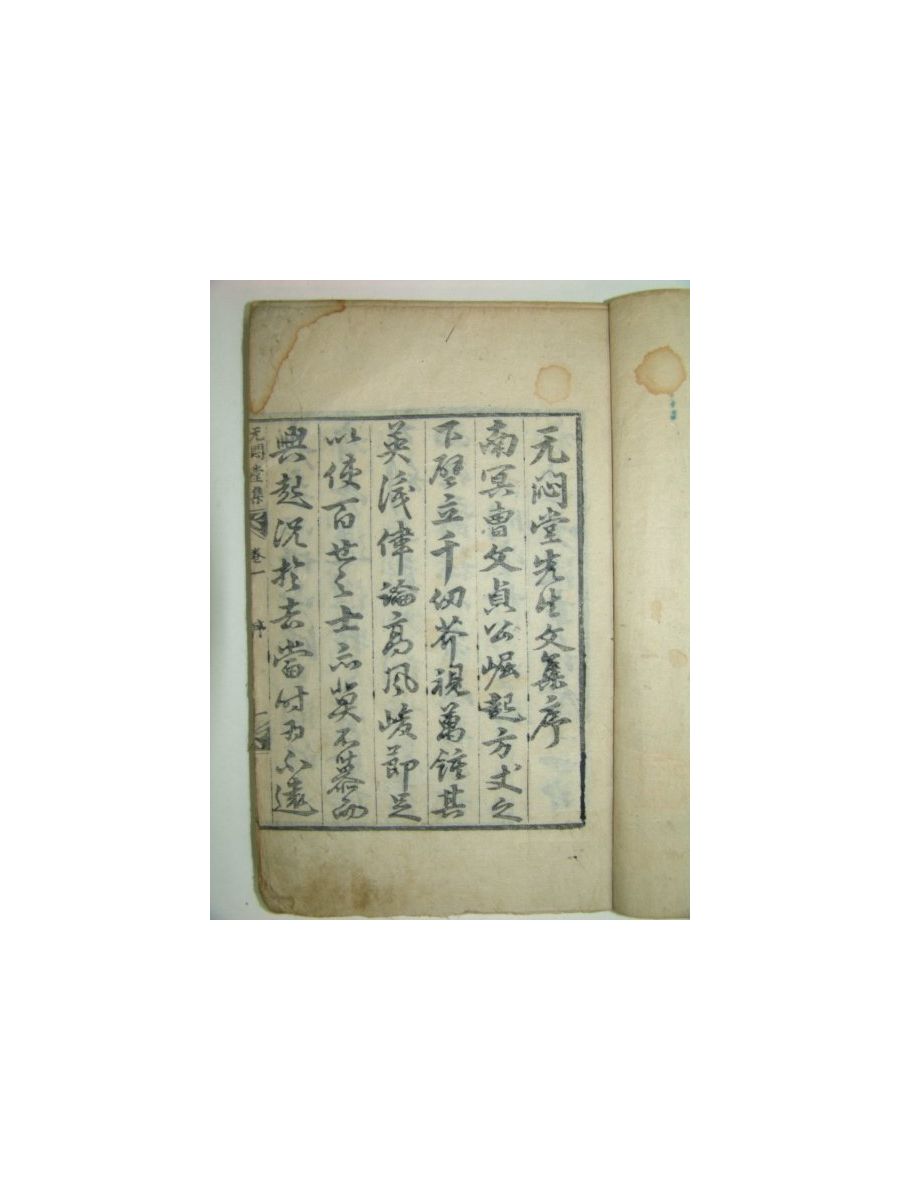 无悶堂先生文集序
南冥曺文貞公崛起方丈之
下壁立千仞芥視萬鍾其
英偉論高風峻節足
以使百世之士亦莫不而
興起況於去當時為不遠
无悶堂集 卷一 序 一